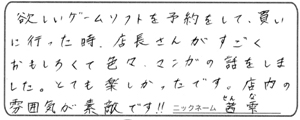 欲しいゲームソフトを予約をして、買い
に行った時、店長さんがすごく
おもしろくて色々、マンガの話をしま
した。とても楽しかったです。店内の
雰囲気が素敵です!! ニックネーム 茜雫
せんな